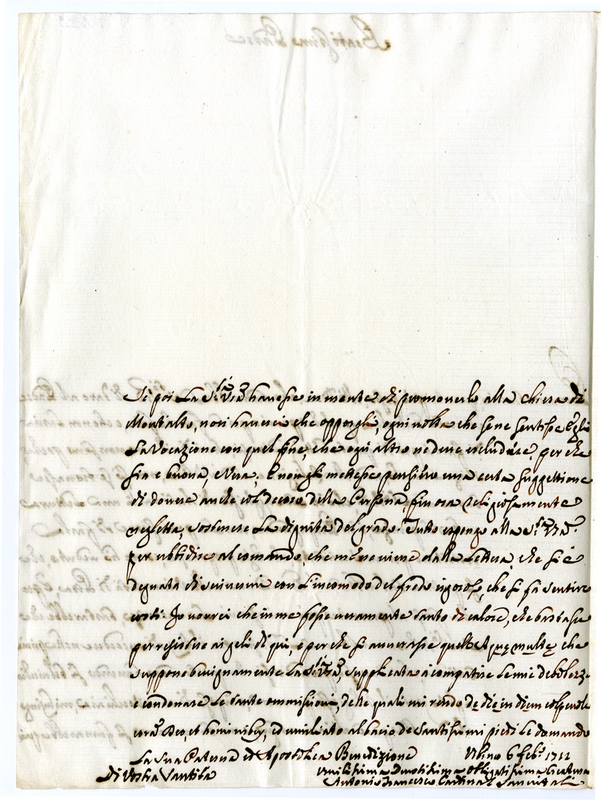 Se poi La S.tà V.ra havesse in mente di promoverlo alla Chiesa di
Mont'alto, non haverei che opporgli, ogni volta che sene sentisse
La Vocazione con quel fine, che ogni altro ne deve escludere, per che
sia e buona, e vera, e non gli mettesse pensiero una certa suggettione
di dovere anche col decoro della Persona, fin ora religiosamente
negletta, sostenere La dignità del grado. Tutto espongo alla S.tà V.ra
per ubbidire al comando, che me ne viene dalla Lettera, che si è
degnata di scrivermi con l'incomodo del freddo rigoroso, che si fa sentire
costì: Io vorrei che in me fosse veramente tanto di calore, che bastasse
per resistere ai geli di qui, e per che si avverasse quell' Aquae multae che
suppone benignamente La S.tà V.ra, supplicata a compatire le mie debolezze
e condonare Le tante ommissioni, de che quali mi rendo de die in diem colpevole
coram Deo, et hominibus, ed umiliato al bacio de Santissimi piedi Le domando
La Sua Paterna ed Apostolica Benedizione Urbino 6 feb.o 1712
Di Vostra Santità
Umilissima Devotissima Obligatissima Creatura
Antonio Francesco Cardinal Sanvitali